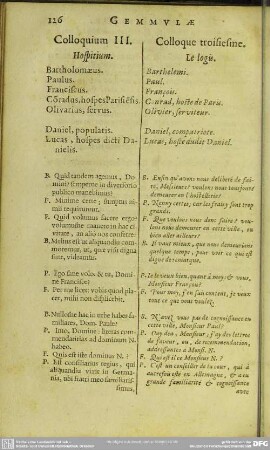 126 GEMMULÆ
Colloquium III.
Hospitium.
Bartholomæus.
Paulus.
Franciscus.
Olivarius, servus.
Daniel, popularis.
Lucas, hospes dicti Da-
nielis.
B. Quid tandem agimus, Do-
publico
P. Minime certe; sumptus ni-
mii
F. Quid volumus sacere ergo?
manere in hac ci-
vitate, an aliò nos conferre?
B. Melius est ut aliquandiu com-
moremur, ut, quæ visu digna
sint, videamus.
P. Ego sine vobis &
ne Francisce?
F. Per me licet: vobis quod pla-
cet, mihi non displicebit.
B. Nullosne hac in urbe habes fa-
miliares, Dom. Paule?
P. Imo, Domine: literas com-
mendatitias ad dominum N.
habeo.
F. Quis est iste dominus N.?
P. Est consiliarius regius, qui
aliquandiu vixit in Germa-
nia, ubi fuit meo familiaris-
simus.
Colloque troisiesme.
Le logis.
Barthelemi.
Paul.
François.
Conrad, hoste de Paris.
Olivier, serviteur.
Daniel, compatriote.
Lucas, hoste audit Daniel.
B. Enfin qu'avons nous deliberé de fai-
re, Messieurs? voulons nous tousjours
demeurer en l'hostelerie?
P. Nenny certes, car les fraix sont trop
grands.
F. Que voulons nous donc faire? vou-
lons nous demeurer en cette ville, ou
bien aller ailleurs?
B. Il vaut mieux, que nous demeurions
quelque temps, pour voir ce qui est
digne de remarque.
P. Je le veux bien, quant à moy; & vous,
Monsieur François?
F. Pour moy, j'en suis content, je veux
tout ce que vous voulez.
B. N'avez vous pas de cognoissance en
cette ville, Monsieur Paul?
P. Ouy dea, Monsieur; j'ay des lettres
de faveur, ou, de recommendation,
addressantes à Mons. N.
F. Qui est il ce Monsieur N.?
P. C'est un conseiller de la cour, qui a
autrefois esté en Allemagne, & a eu
grande familiarité & cognoissance
avec